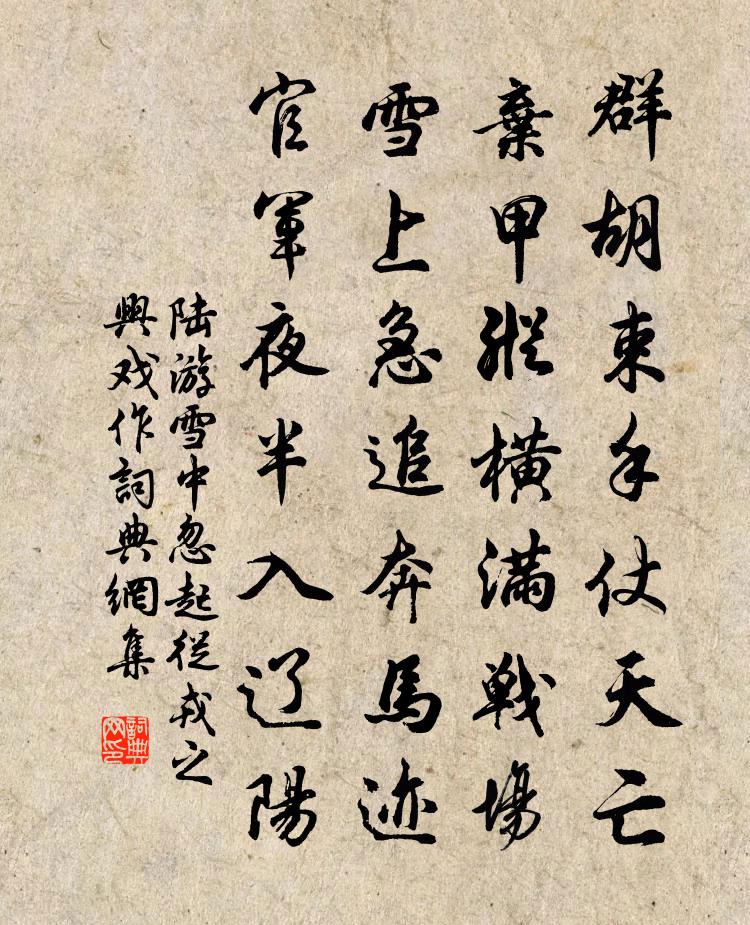 群胡束手仗天亡
棄甲縱橫滿戦場
雪上急追奔馬迹
官軍夜半入辽陽
陆游雪中忽起從戎之
興戏作詞典網集
詞典网印